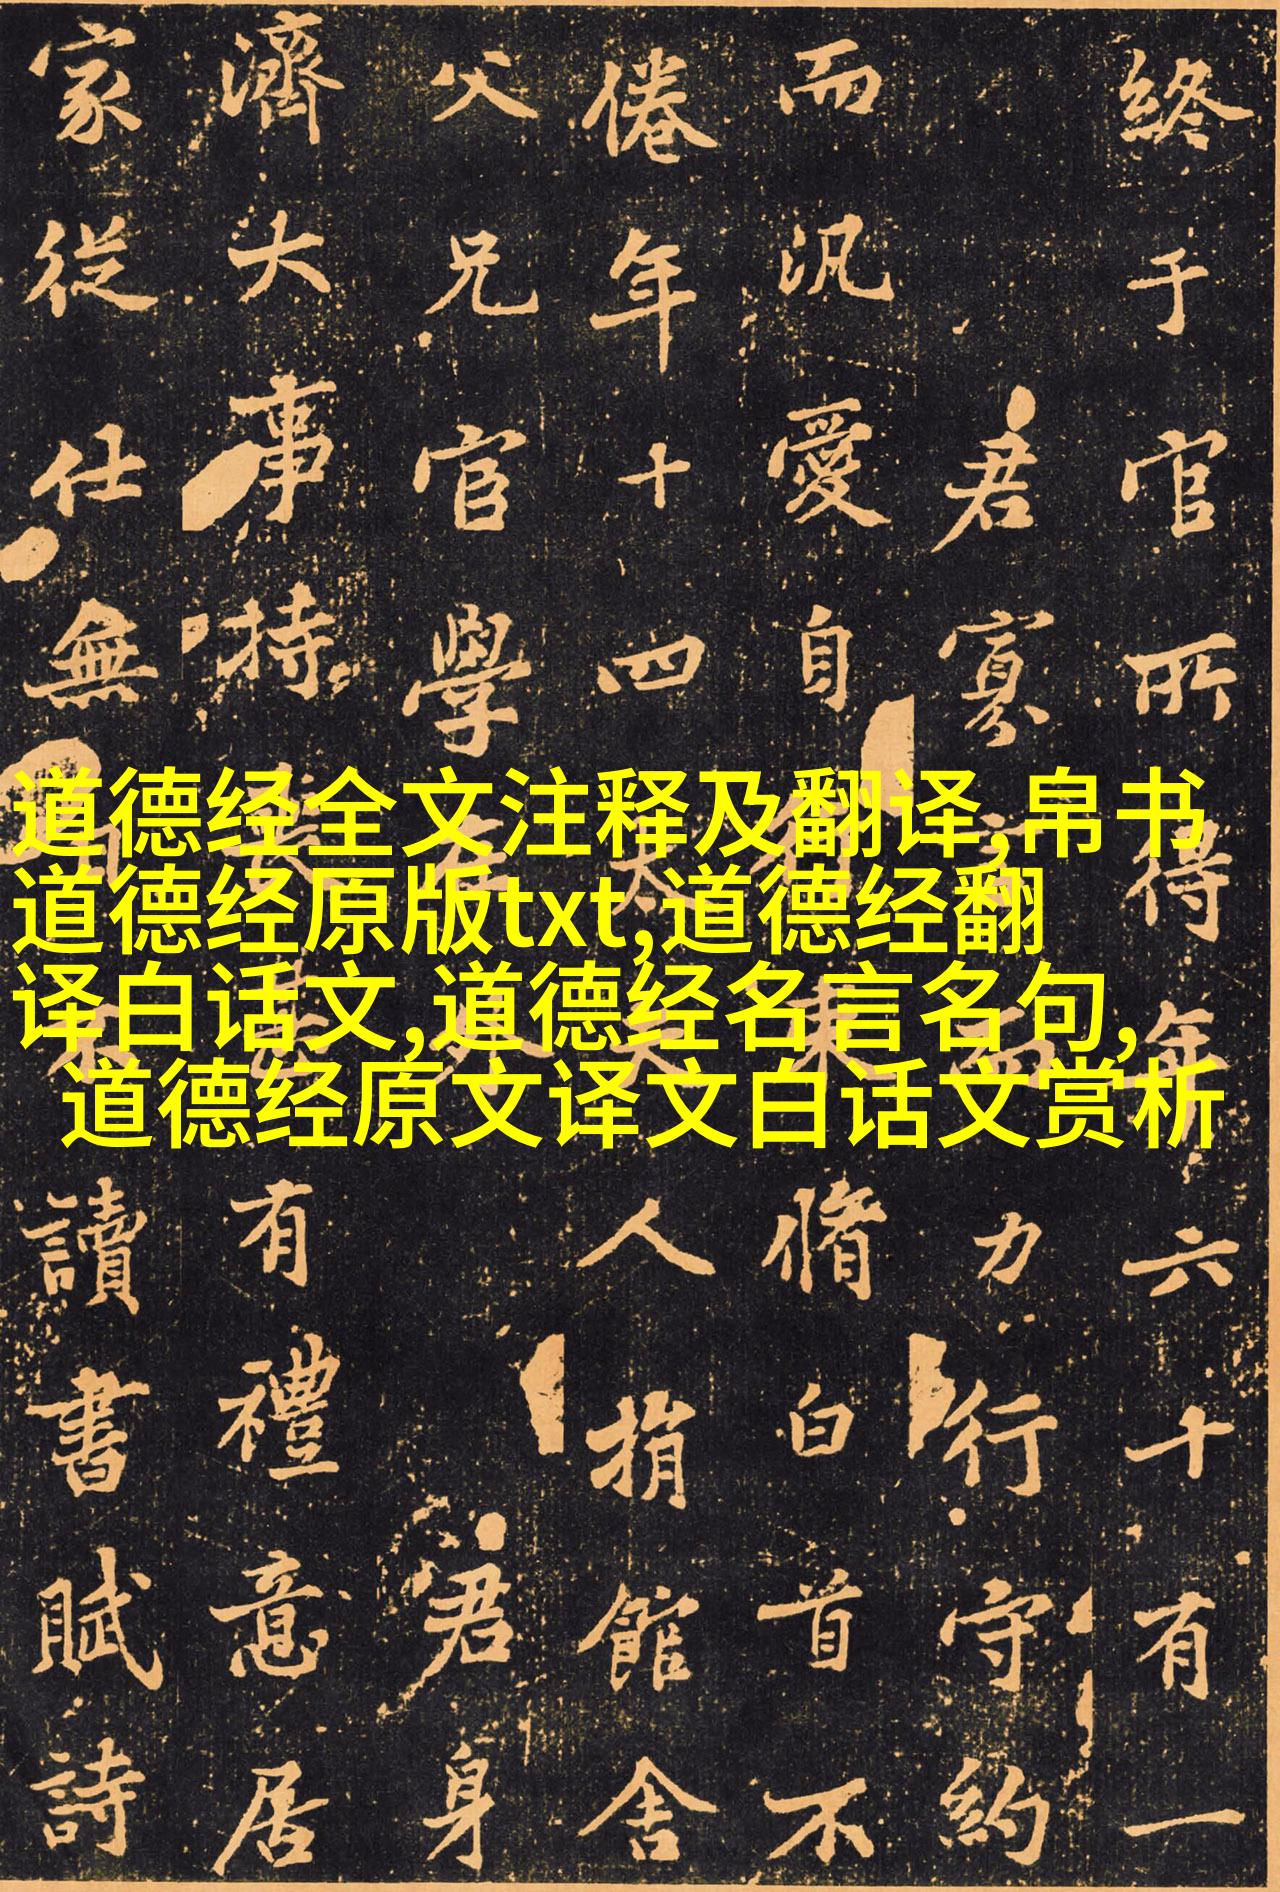 終于官所得年六十有一
君寡言而力行守約
而汎愛自束脩白首不
倦年十四太夫人捐館舍
父兄官學在外 君身
濟大事持喪有禮意居
家從仕無不讀書賦詩
道德经全文注释及翻译,帛书
道德经原版txt,道德经翻
译白话文,道德经名言名句,
道德经原文译文白话文赏析